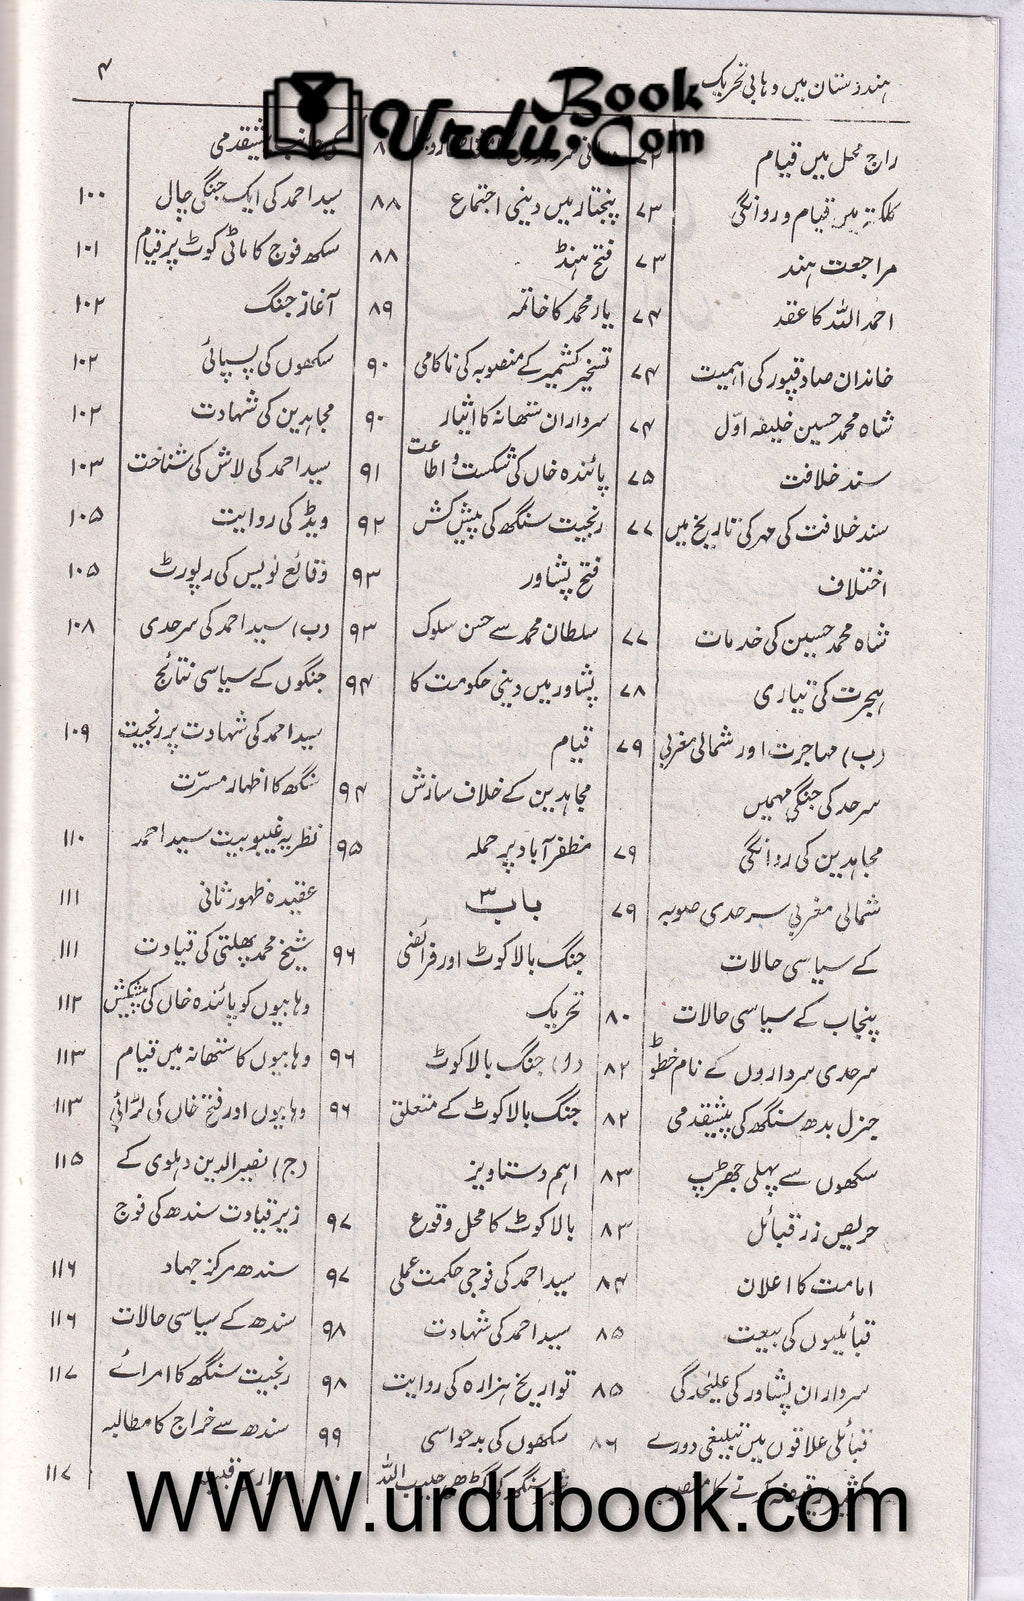 ہندوستان میں وہابی تحریک
۴
Urdu Book .Com
راج محل میں قیام ۷۲
کلکتہ میں قیام و روانگی ۷۳
مراجعت ہند ۷۳
احمد اللہ کا عقد ۷۴
خاندان صادقپور کی اہمیت ۷۴
شاہ محمد حسین خلیفہ اوّل ۷۴
سند خلافت ۷۵
سند خلافت کی مہر کی تاریخ میں ۷۷
اختلاف
شاہ محمد حسین کی خدمات ۷۷
ہجرت کی تیاری ۷۸
(ب) مہاجرت اور شمالی مغربی ۷۹
سرحد کی جنگی مہمیں
مجاہدین کی روانگی ۷۹
شمالی مغربی سرحدی صوبہ ۷۹
کے سیاسی حالات
پنجاب کے سیاسی حالات ۸۰
سرحدی سرداروں کے نام خطوط ۸۲
جنرل بدھ سنگھ کی پیشقدمی ۸۲
سکھوں سے پہلی جھڑپ ۸۳
حریص زر قبائل ۸۳
امامت کا اعلان ۸۴
قبائلیوں کی بیعت ۸۵
سرداران پشاور کی علیٰحدگی ۸۵
قبائلی علاقوں میں تبلیغی دورے ۸۶
پنجتار میں دینی اجتماع ۸۸
فتح ہنڈ ۸۸
یار محمد کا خاتمہ ۸۹
تسخیر کشمیر کے منصوبہ کی ناکامی ۹۰
سرداران ستھانہ کا ایثار ۹۰
پائندہ خاں کی شکست و اطاعت ۹۱
رنجیت سنگھ کی پیش کش ۹۲
فتح پشاور ۹۳
سلطان محمد سے حسن سلوک ۹۳
پشاور میں دینی حکومت کا ۹۴
قیام
مجاہدین کے خلاف سازش ۹۴
مظفر آباد پر حملہ ۹۵
باب ۳
جنگ بالا کوٹ اور فرائضی ۹۶
تحریک
(ا) جنگ بالا کوٹ ۹۶
جنگ بالا کوٹ کے متعلق ۹۶
اہم دستاویز
بالا کوٹ کا محل وقوع ۹۷
سید احمد کی فوجی حکمت عملی ۹۷
سید احمد کی شہادت ۹۸
تواریخ ہزارہ کی روایت ۹۸
سکھوں کی بدحواسی ۹۹
پیشقدمی
سید احمد کی ایک جنگی چال ۱۰۰
سکھ فوج کا ماٹی کوٹ پر قیام ۱۰۱
آغاز جنگ ۱۰۲
سکھوں کی پسپائی ۱۰۲
مجاہدین کی شہادت ۱۰۲
سید احمد کی لاش کی شناخت ۱۰۳
ویڈ کی روایت ۱۰۵
وقائع نویس کی رپورٹ ۱۰۵
(ب) سید احمد کی سرحدی ۱۰۸
جنگوں کے سیاسی نتائج
سید احمد کی شہادت پر رنجیت ۱۰۹
سنگھ کا اظہار مسرّت
نظریہ غیبوبیت سید احمد ۱۱۰
عقیدہ ظہور ثانی ۱۱۱
شیخ محمد پھلتی کی قیادت ۱۱۱
وہابیوں کو پائندہ خاں کی پیشکش ۱۱۲
وہابیوں کا ستھانہ میں قیام ۱۱۳
وہابیوں اور فتح خاں کی لڑائی ۱۱۳
(ج) نصیر الدین دہلوی کے ۱۱۵
زیر قیادت سندھ کی فوج
سندھ مرکز جہاد ۱۱۶
سندھ کے سیاسی حالات ۱۱۶
رنجیت سنگھ کا امرائے ۱۱۷
سندھ سے خراج کا مطالبہ
۱۱۷
www.urdubook.com